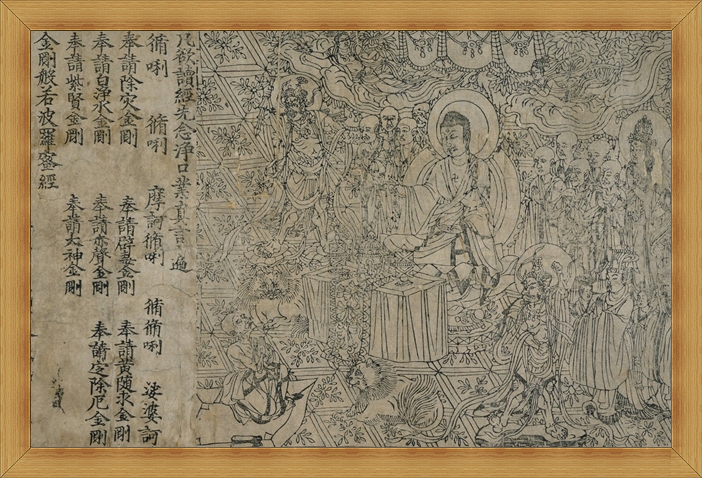 凡欲讀經先念淨口業真言遍
脩唎 脩唎 摩訶脩唎 脩脩唎 娑婆訶
奉請除灾金剛 奉請辟毒金剛 奉請黄隨求金剛
奉請白淨水金剛 奉請赤聲金剛 奉請定除厄金剛
奉請紫賢金剛 奉請大神金剛
金剛般若波羅蜜經